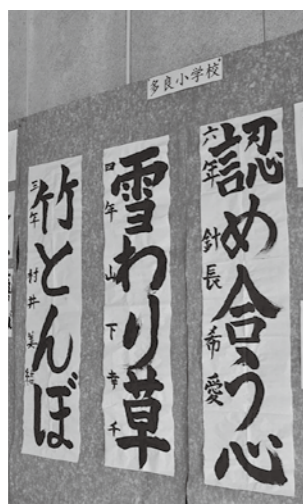 多良小学校
認め合う心
六年 針長希愛
雪わり草
四年 山下幸千
竹とんぼ
三年 村井美結